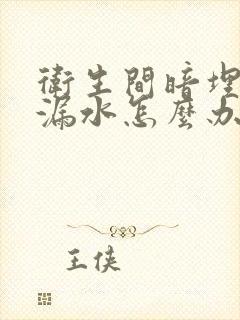 衛生間暗埋
漏水怎麼办
王俠